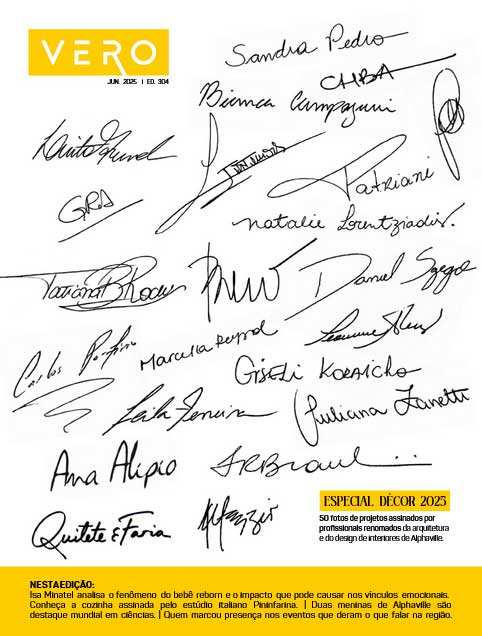 VERO
JUN. 2025 | ED. 304
Sandra Pedro
CHBA
Bianca
GRA
Patriani
natalie Lorentziadis.
Tatiana B Rocus
Daniel Szego
Carlos
Marcella
Giseli Koraicho
Leila Ferreira
Juliana Zanetti
Ana Alipio
Quitete & Faria
ESPECIAL DÉCOR 2025
50 fotos de projetos assinados por
profissionais renomados da arquitetura
e do design de interiores de Alphaville.
NESTA EDIÇÃO:
Isa Minatel analisa o fenômeno do bebê reborn e o impacto que pode causar nos vínculos emocionais.
Conheça a cozinha assinada pelo estúdio italiano Pininfarina. | Duas meninas de Alphaville são
destaque mundial em ciências. | Quem marcou presença nos eventos que deram o que falar na região.